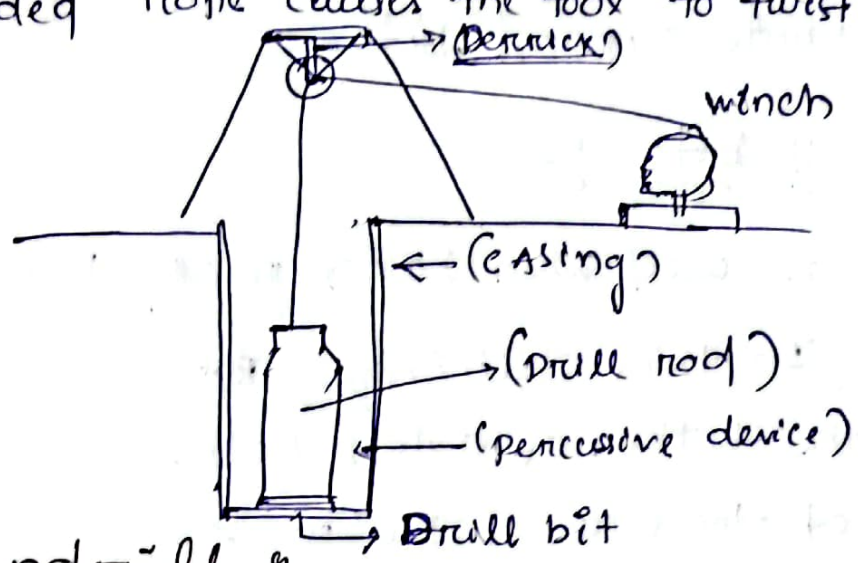 deq Rope causes the tool to twist
(Derrick)
winch
(CASing)
(Drill rod)
(percussive device)
Drill bit